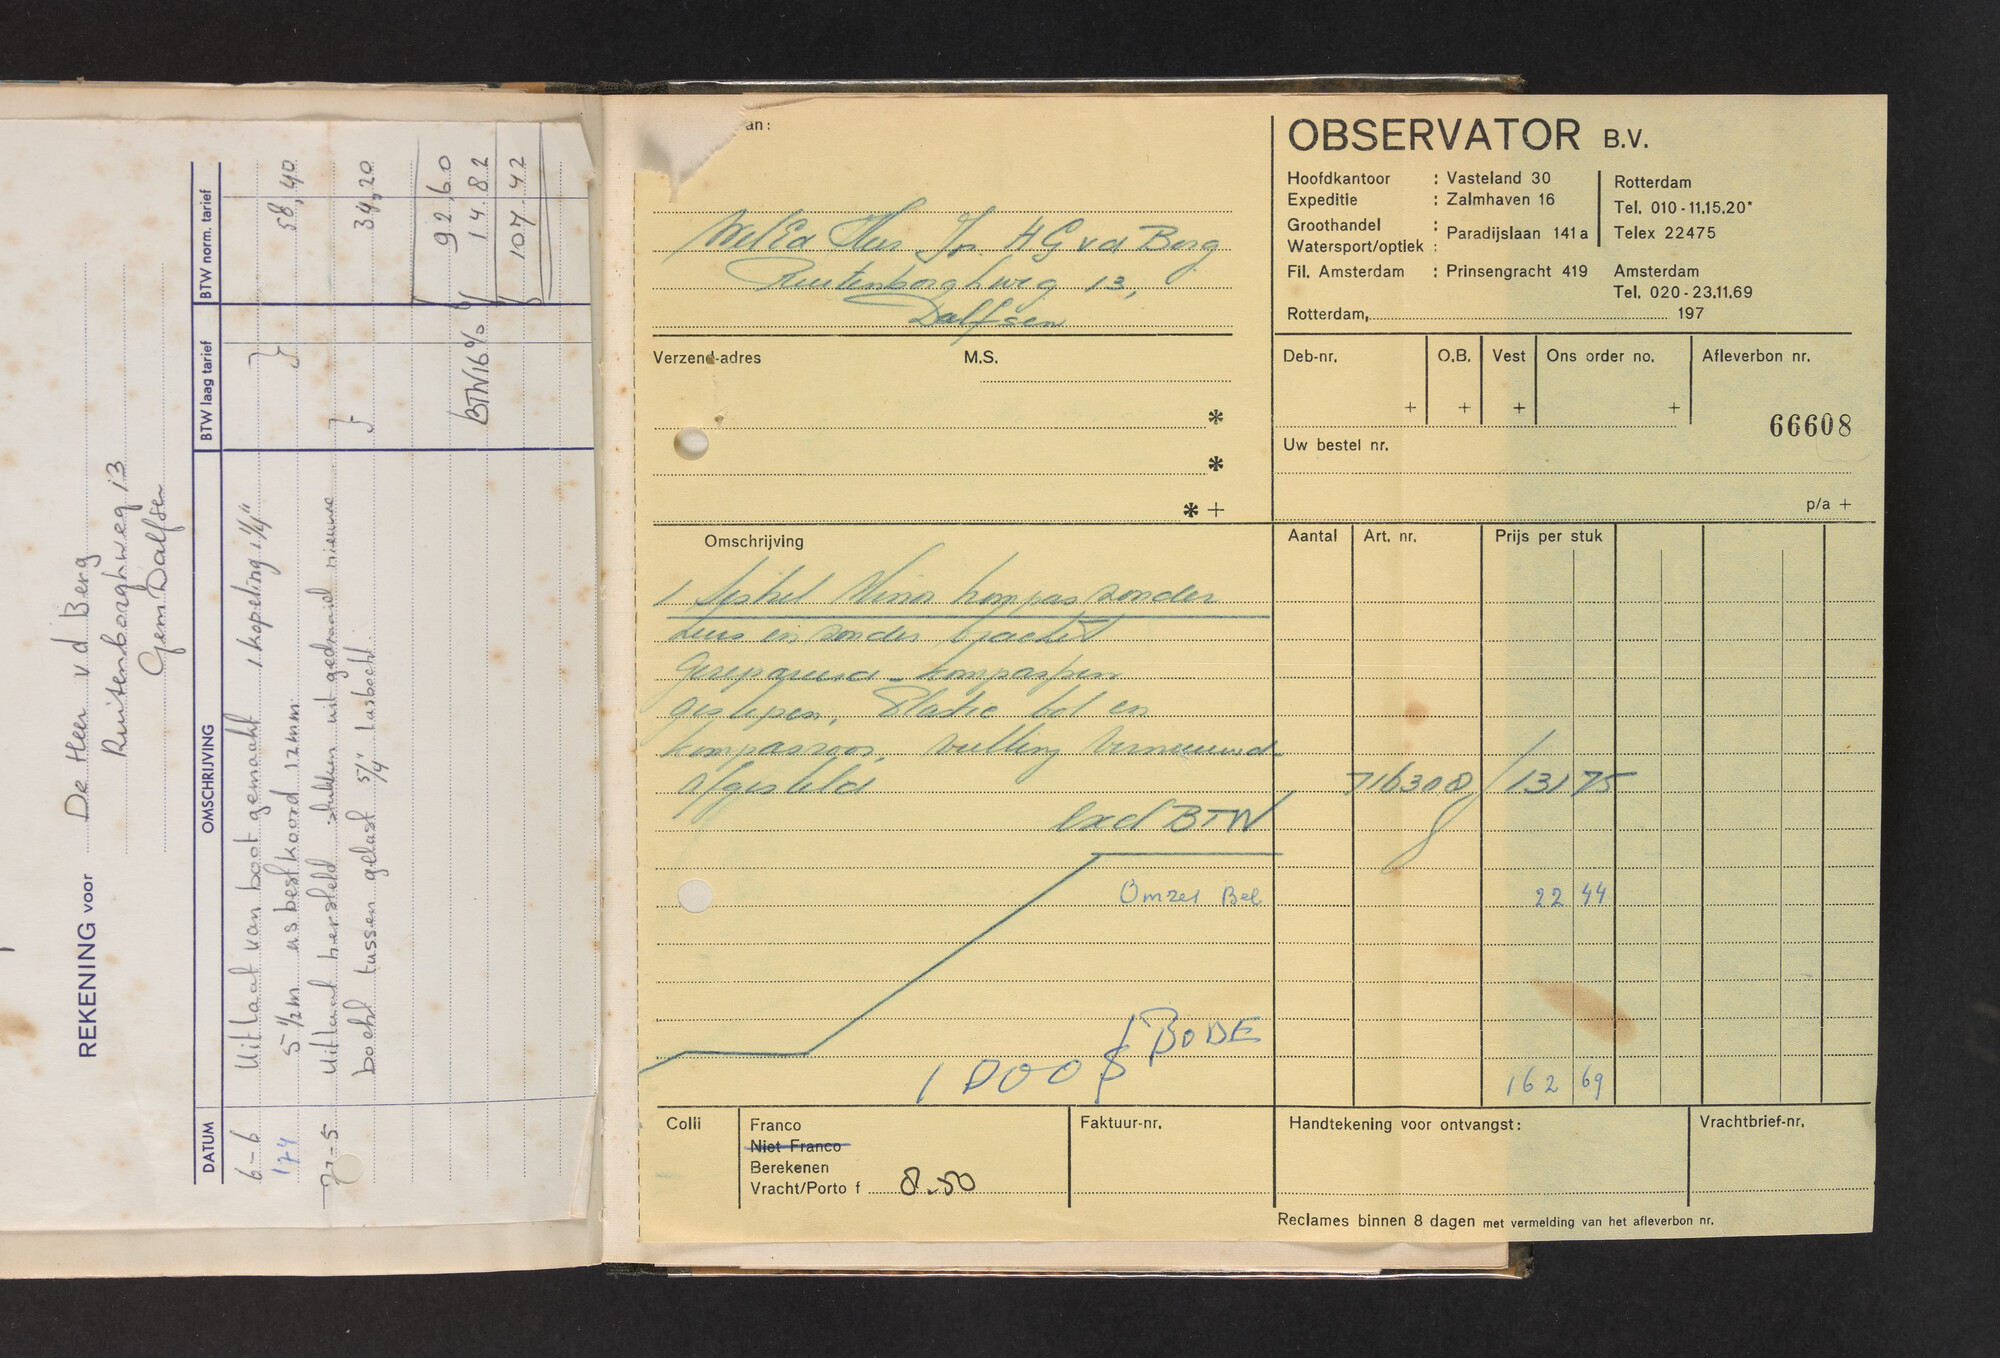 REKENING voor De Heer v d Berg
Ruitenborghweg 13
Gem. Dalfsen
DATUM OMSCHRIJVING BTW laag tarief BTW norm. tarief
6-6 Uitlaat van boot gemaakt 1 kopeling 1¼"
174 5½ m asbestkoord 12mm. 58,40
-5 Uitlaat hersteld stukken uit gedraaid nieuwe
bocht tussen gelast 5/4" lasbocht. 34,20
92,60
BTW 16% 14,82
107,42
an:
WelEd Heer Jr H G v d Berg
Ruitenborghweg 13,
Dalfsen
OBSERVATOR B.V.
Hoofdkantoor : Vasteland 30
Expeditie : Zalmhaven 16
Groothandel
Watersport/optiek : Paradijslaan 141a
Fil. Amsterdam : Prinsengracht 419
Rotterdam
Tel. 010-11.15.20*
Telex 22475
Amsterdam
Tel. 020-23.11.69
Rotterdam, 197
Verzend-adres M.S.
*
*
* +
Deb-nr. O.B. Vest Ons order no. Afleverbon nr.
+ + + +
66608
Uw bestel nr.
p/a +
Omschrijving Aantal Art. nr. Prijs per stuk
1 Sestrel Minor kompas zonder
zonder bracket
gerepareerd - kompaspen
geslepen, Plastic bol en
kompasroos, vulling vernieuwd
afgesteld 716300 131 75
excl BTW
Omzet Bel 22 44
BODE
162 69
Colli Franco
Niet Franco
Berekenen
Vracht/Porto f 8.50
Faktuur-nr.
Handtekening voor ontvangst:
Vrachtbrief-nr.
Reclames binnen 8 dagen met vermelding van het afleverbon nr.